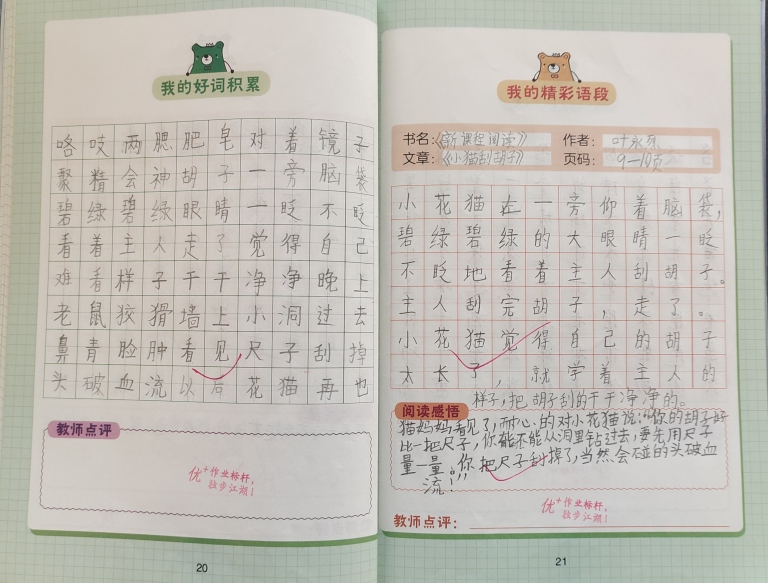 我的好词积累
咯吱两腮肥皂对着镜子
聚精会神胡子一旁脑袋
碧绿碧绿眼睛一眨不眨
看着主人走了觉得自己
难看样子干干净净晚上
老鼠狡猾墙上小洞过去
鼻青脸肿看见尺子刮掉
头破血流以后花猫再也
教师点评
优+作业标杆,
独步江湖!
20
我的精彩语段
书名:《新课程阅读》
作者:叶永烈
文章:《小猫刮胡子》
页码:9—10页
小花猫在一旁仰着脑袋,
碧绿碧绿的大眼睛一眨
不眨地看着主人刮胡子。
主人刮完胡子,走了。
小花猫觉得自己的胡子
太长了,就学着主人的
样子,把胡子刮的干干净净的。
阅读感悟
猫妈妈看见了,耐心的对小花猫说:“你的胡子好
比一把尺子,你能不能从洞里钻过去,要先用尺子
量一量。你把尺子刮掉了,当然会碰的头破血
流!”
优+作业标杆,
独步江湖!
教师点评:
21